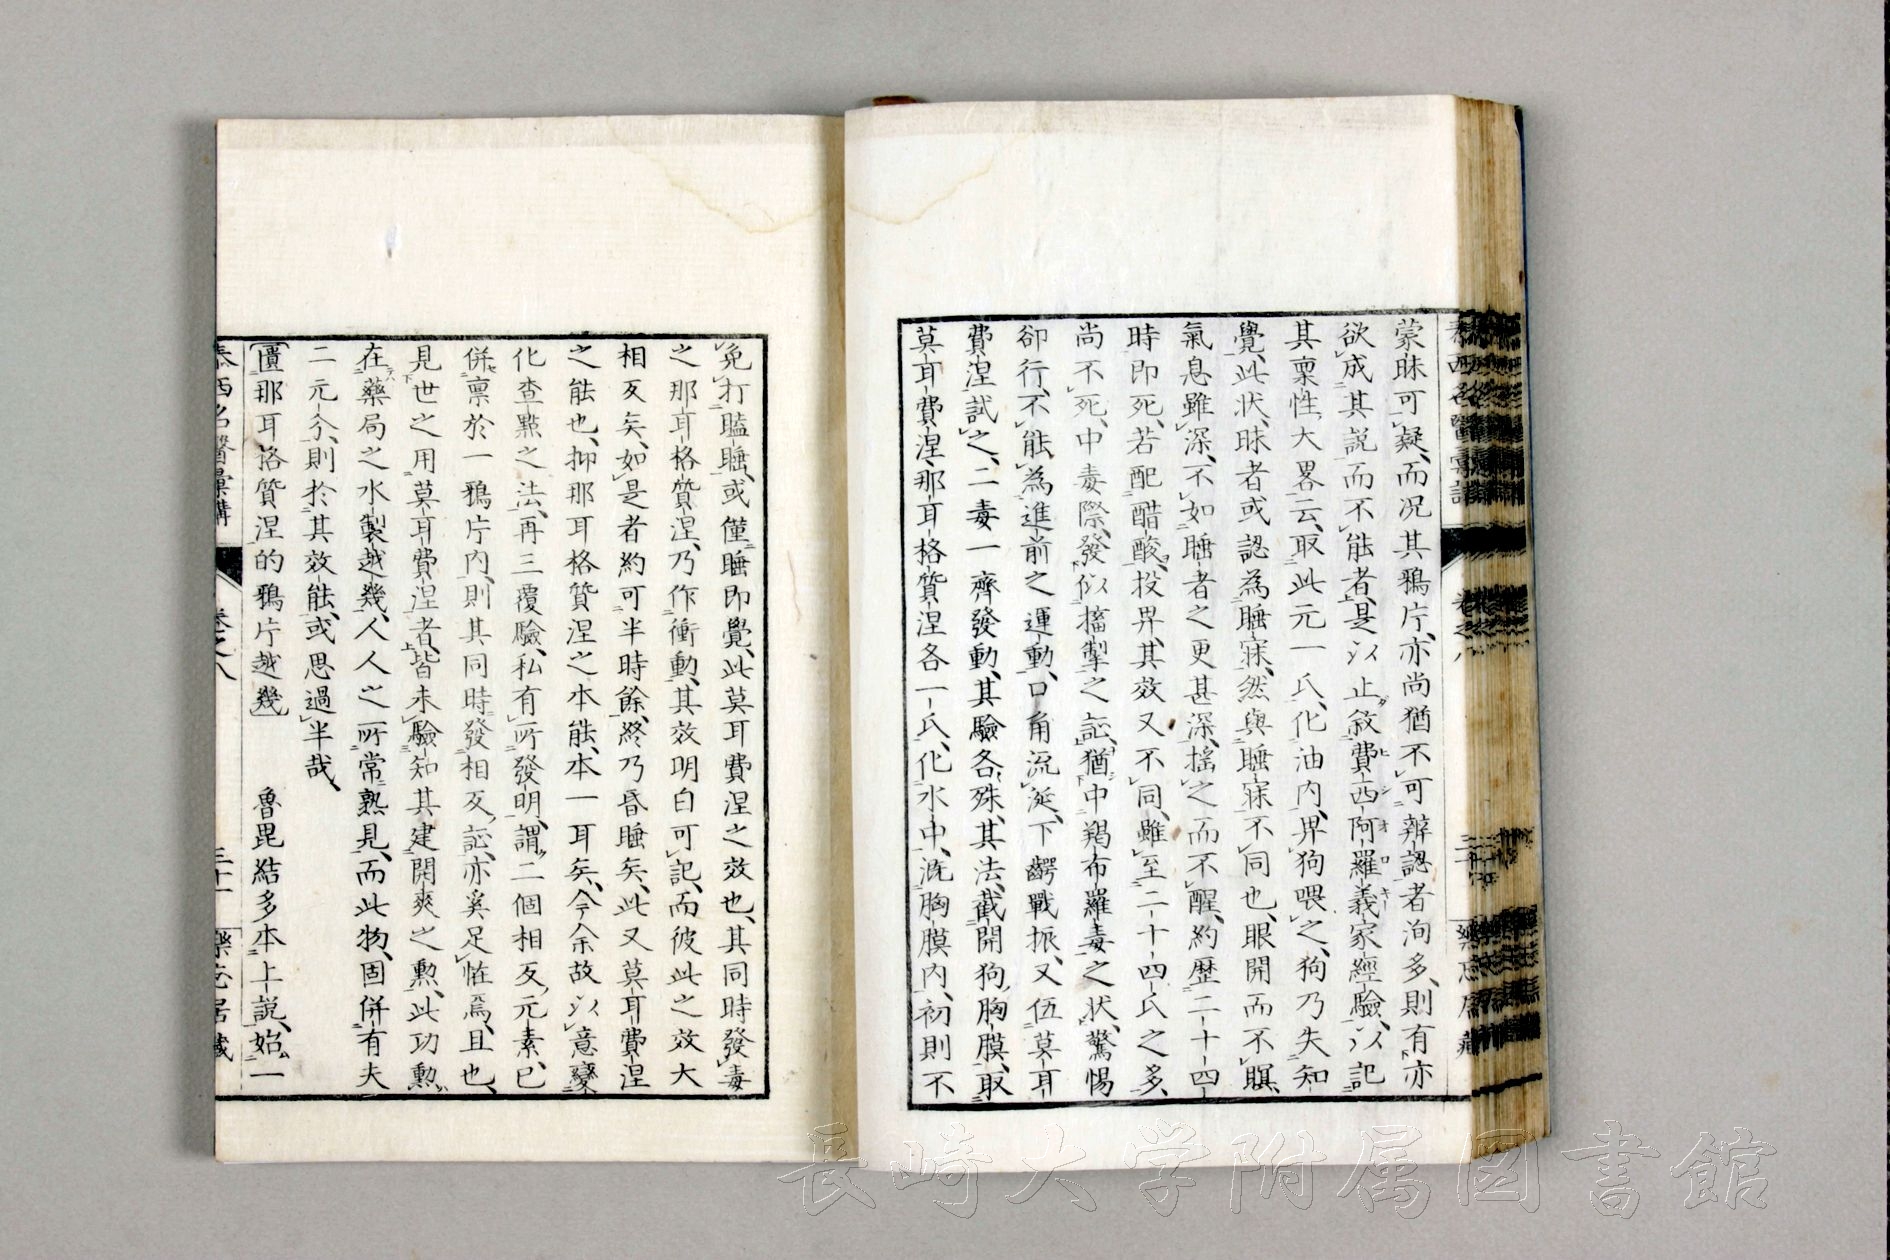 蒙昧可疑、而況其鴉片、亦尚猶不可辨認者洵多、則有亦
欲成其説而不能者、是以止敘費西阿羅義家經驗、以記
其稟性、大畧云、取此元一氏、化油内、畀狗喂之、狗乃失知
覺、此状、昧者或認為睡寐、然與睡寐不同也、眼開而不瞑、
氣息雖深、不如睡者之更甚深、搖之而不醒、約歴二十四
時即死、若配醋酸、投畀、其效又不同、雖至二十四氏之多、
尚不死、中毒際、發似搐掣之証、猶中羯布羅毒之状、驚惕
卻行、不能為進前之運動、口角流涎、下齶戰振、又伍莫耳
費涅試之、二毒一齊發動、其驗各殊、其法、截開狗胸膜、取
莫耳費涅、那耳格質涅各一氏、化水中、漑胸膜内、初則不
免打瞌睡、或僅睡即覺、此莫耳費涅之效也、其同時發毒
之那耳格質涅、乃作衝動、其效明白可記、而彼此之效大
相反矣、如是者約可半時餘、終乃昏睡矣、此又莫耳費涅
之能也、抑那耳格質涅之本能、本一耳矣、今余故以意變
化查點之法、再三覆驗、私有所發明、謂二個相反元素、已
併禀於一鴉片内、則其同時發相反証、亦奚足怪焉、且也、
見世之用莫耳費涅者、皆未驗知其建開爽之勲、此功勲
在藥局之水製越幾、人人之所常熟見、而此物、固併有夫
二元分、則於其效能、或思過半哉、
〔匱那耳格質涅的鴉片越幾〕 魯毘結多本上説、始一
泰西名醫彙講 卷之八 三十一 樂忘居藏